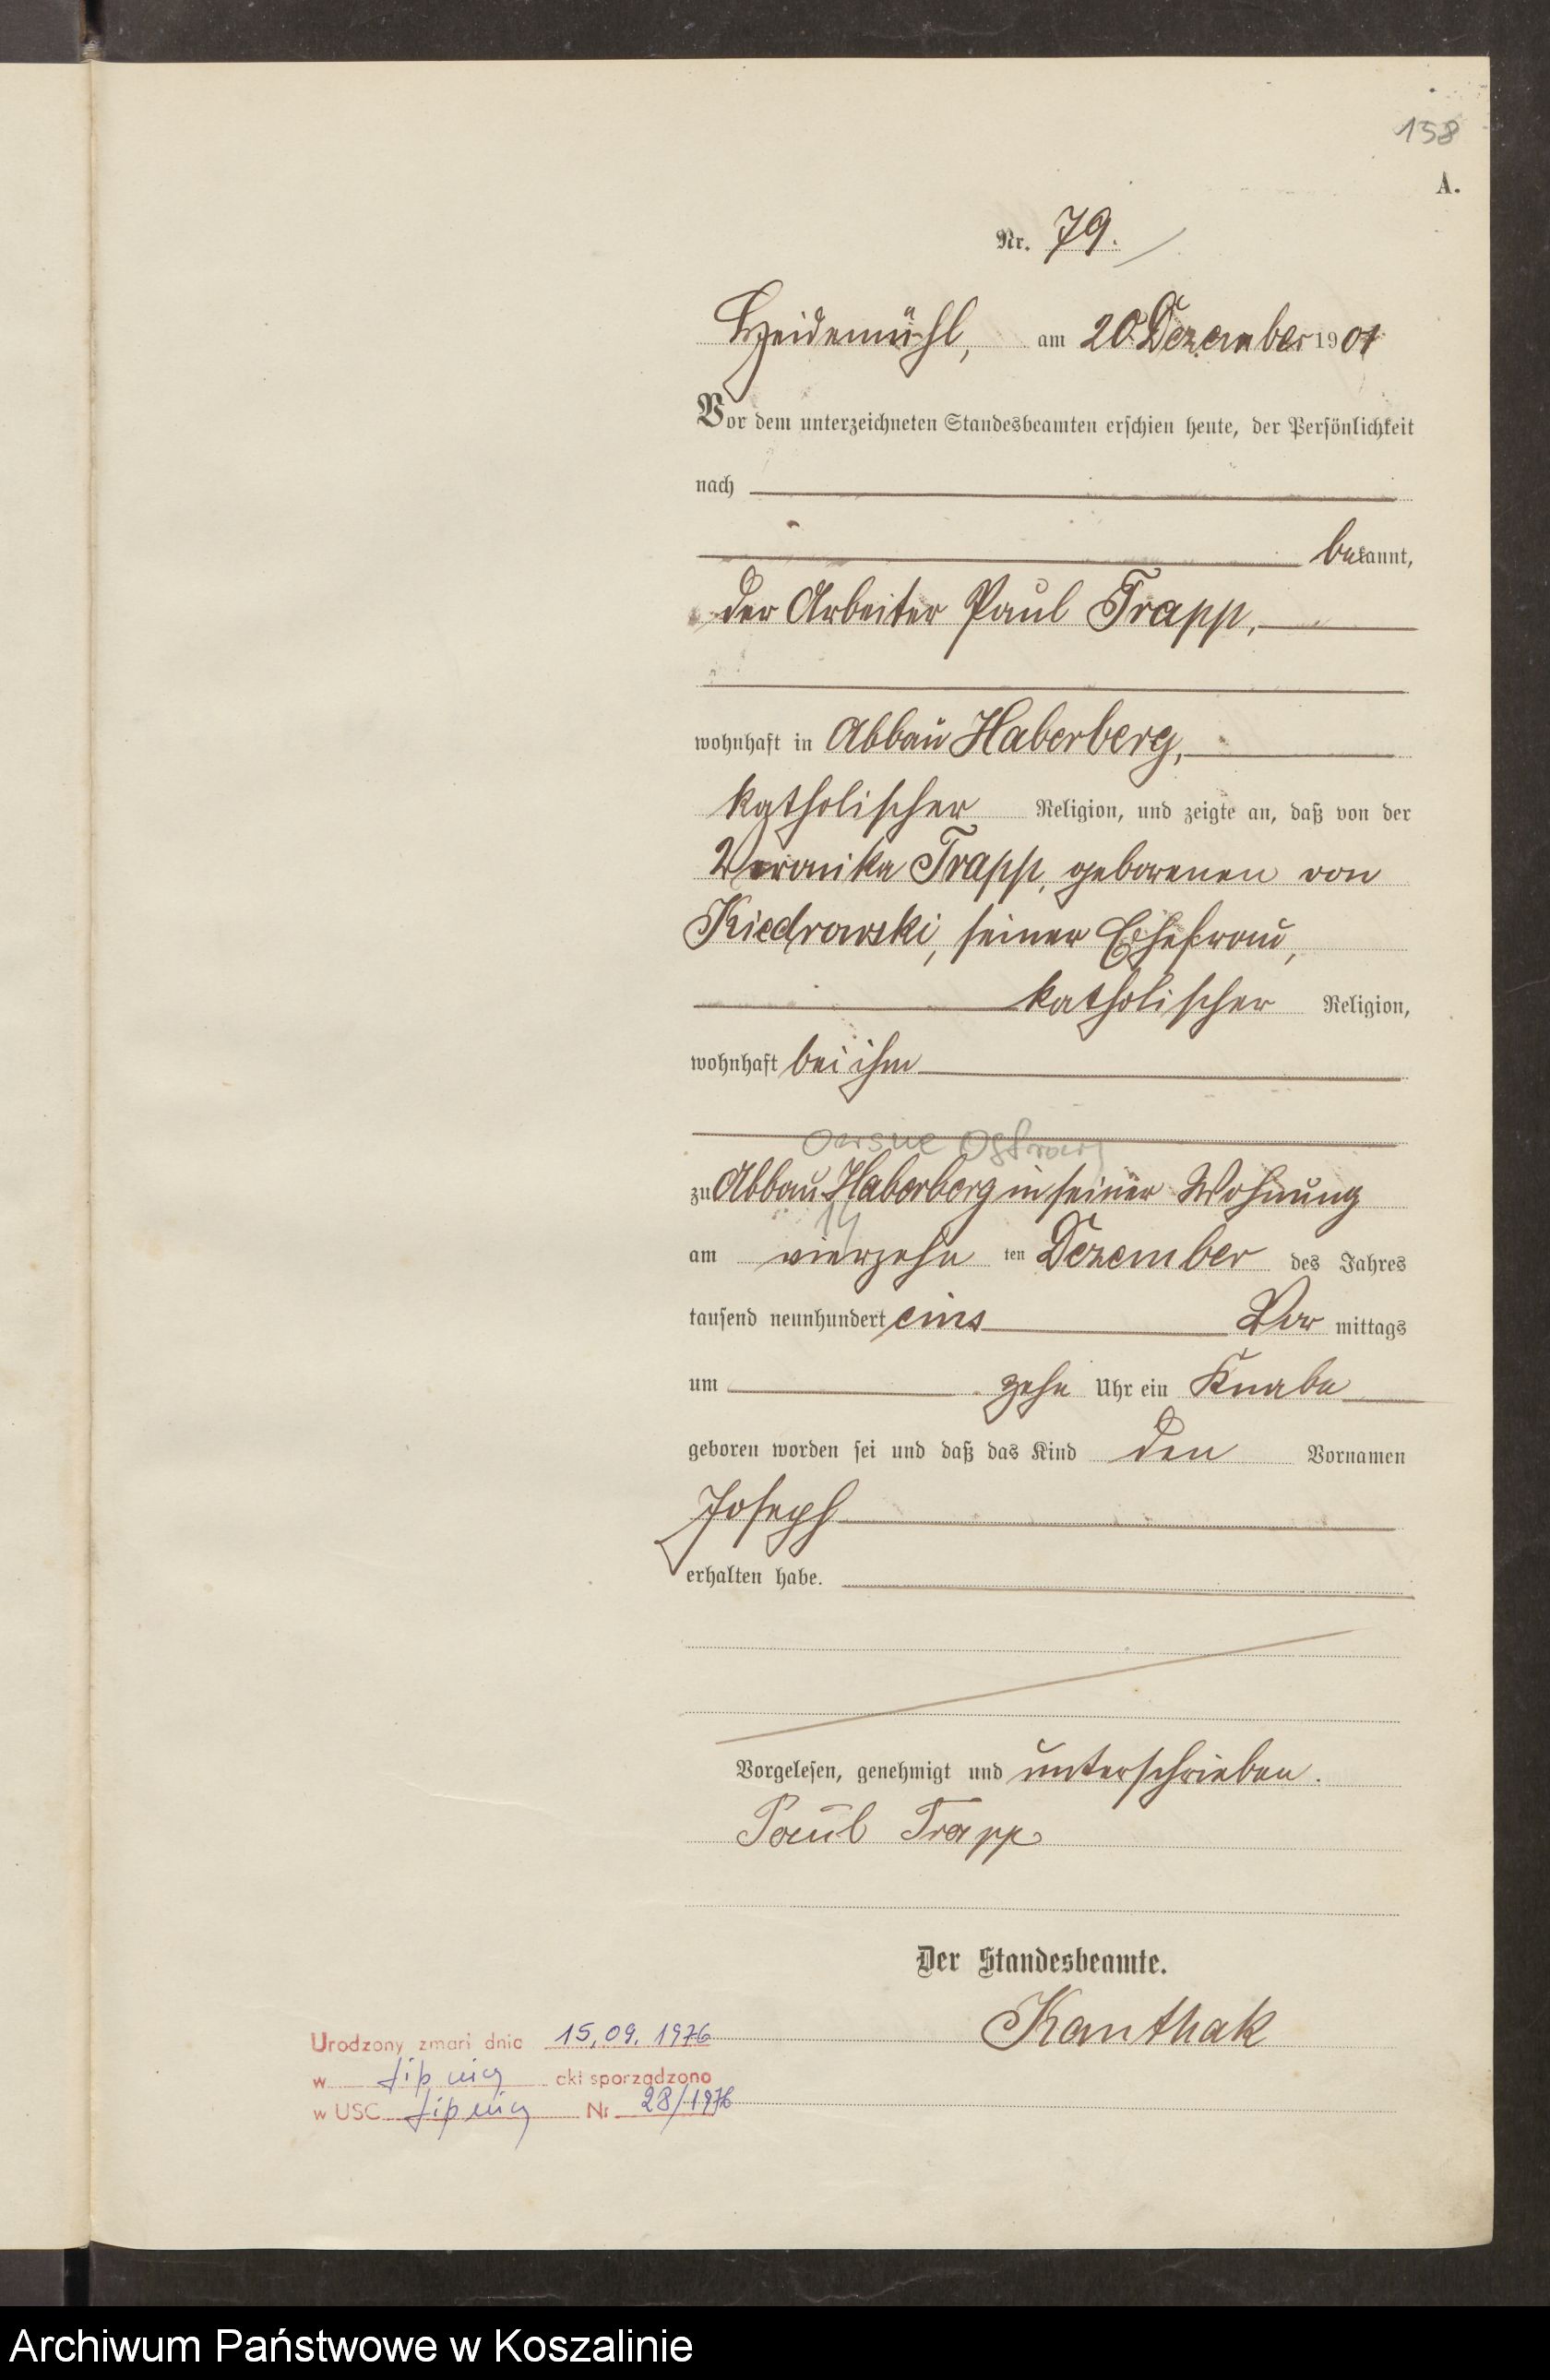 158
A.
Nr. 79.
Heidemühl, am 20. Dezember 1901
Vor dem unterzeichneten Standesbeamten erschien heute, der Persönlichkeit
nach
bekannt,
der Arbeiter Paul Trapp,
wohnhaft in Abbau Haberberg,
katholischer Religion, und zeigte an, daß von der
Veronika Trapp, geborenen von
Kiedrowski, seiner Ehefrau,
katholischer Religion,
wohnhaft bei ihm
Ostrowy
zu Abbau Haberberg in seiner Wohnung
14
am vierzehn ten Dezember des Jahres
tausend neunhundert eins Vor mittags
um zehn Uhr ein Knabe
geboren worden sei und daß das Kind den Vornamen
Joseph
erhalten habe.
Vorgelesen, genehmigt und unterschrieben.
Paul Trapp
Der Standesbeamte.
Kanthak
Urodzony zmarł dnia 15.09.1976
w Lipnicy akt sporządzono
w USC Lipnicy Nr 28/1976
Archiwum Państwowe w Koszalinie